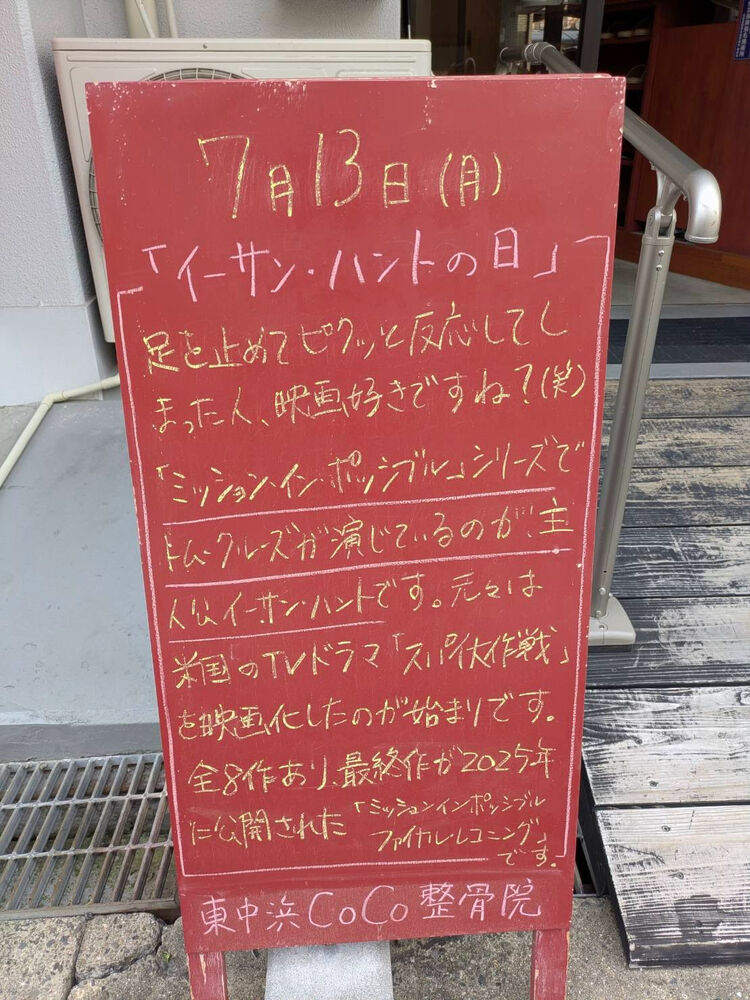 7月13日(月)
「イーサン・ハントの日」
足を止めてピクッと反応してし
まった人、映画好きですね?(笑)
「ミッション・イン・ポッシブル」シリーズで
トム・クルーズが演じているのが、主
人公イーサン・ハントです。元々は
米国のTVドラマ「スパイ大作戦」
を映画化したのが始まりです。
全8作あり、最終作が2025年
に公開された「ミッションインポッシブル
ファイナルレコニング」
です。
東中浜CoCo整骨院